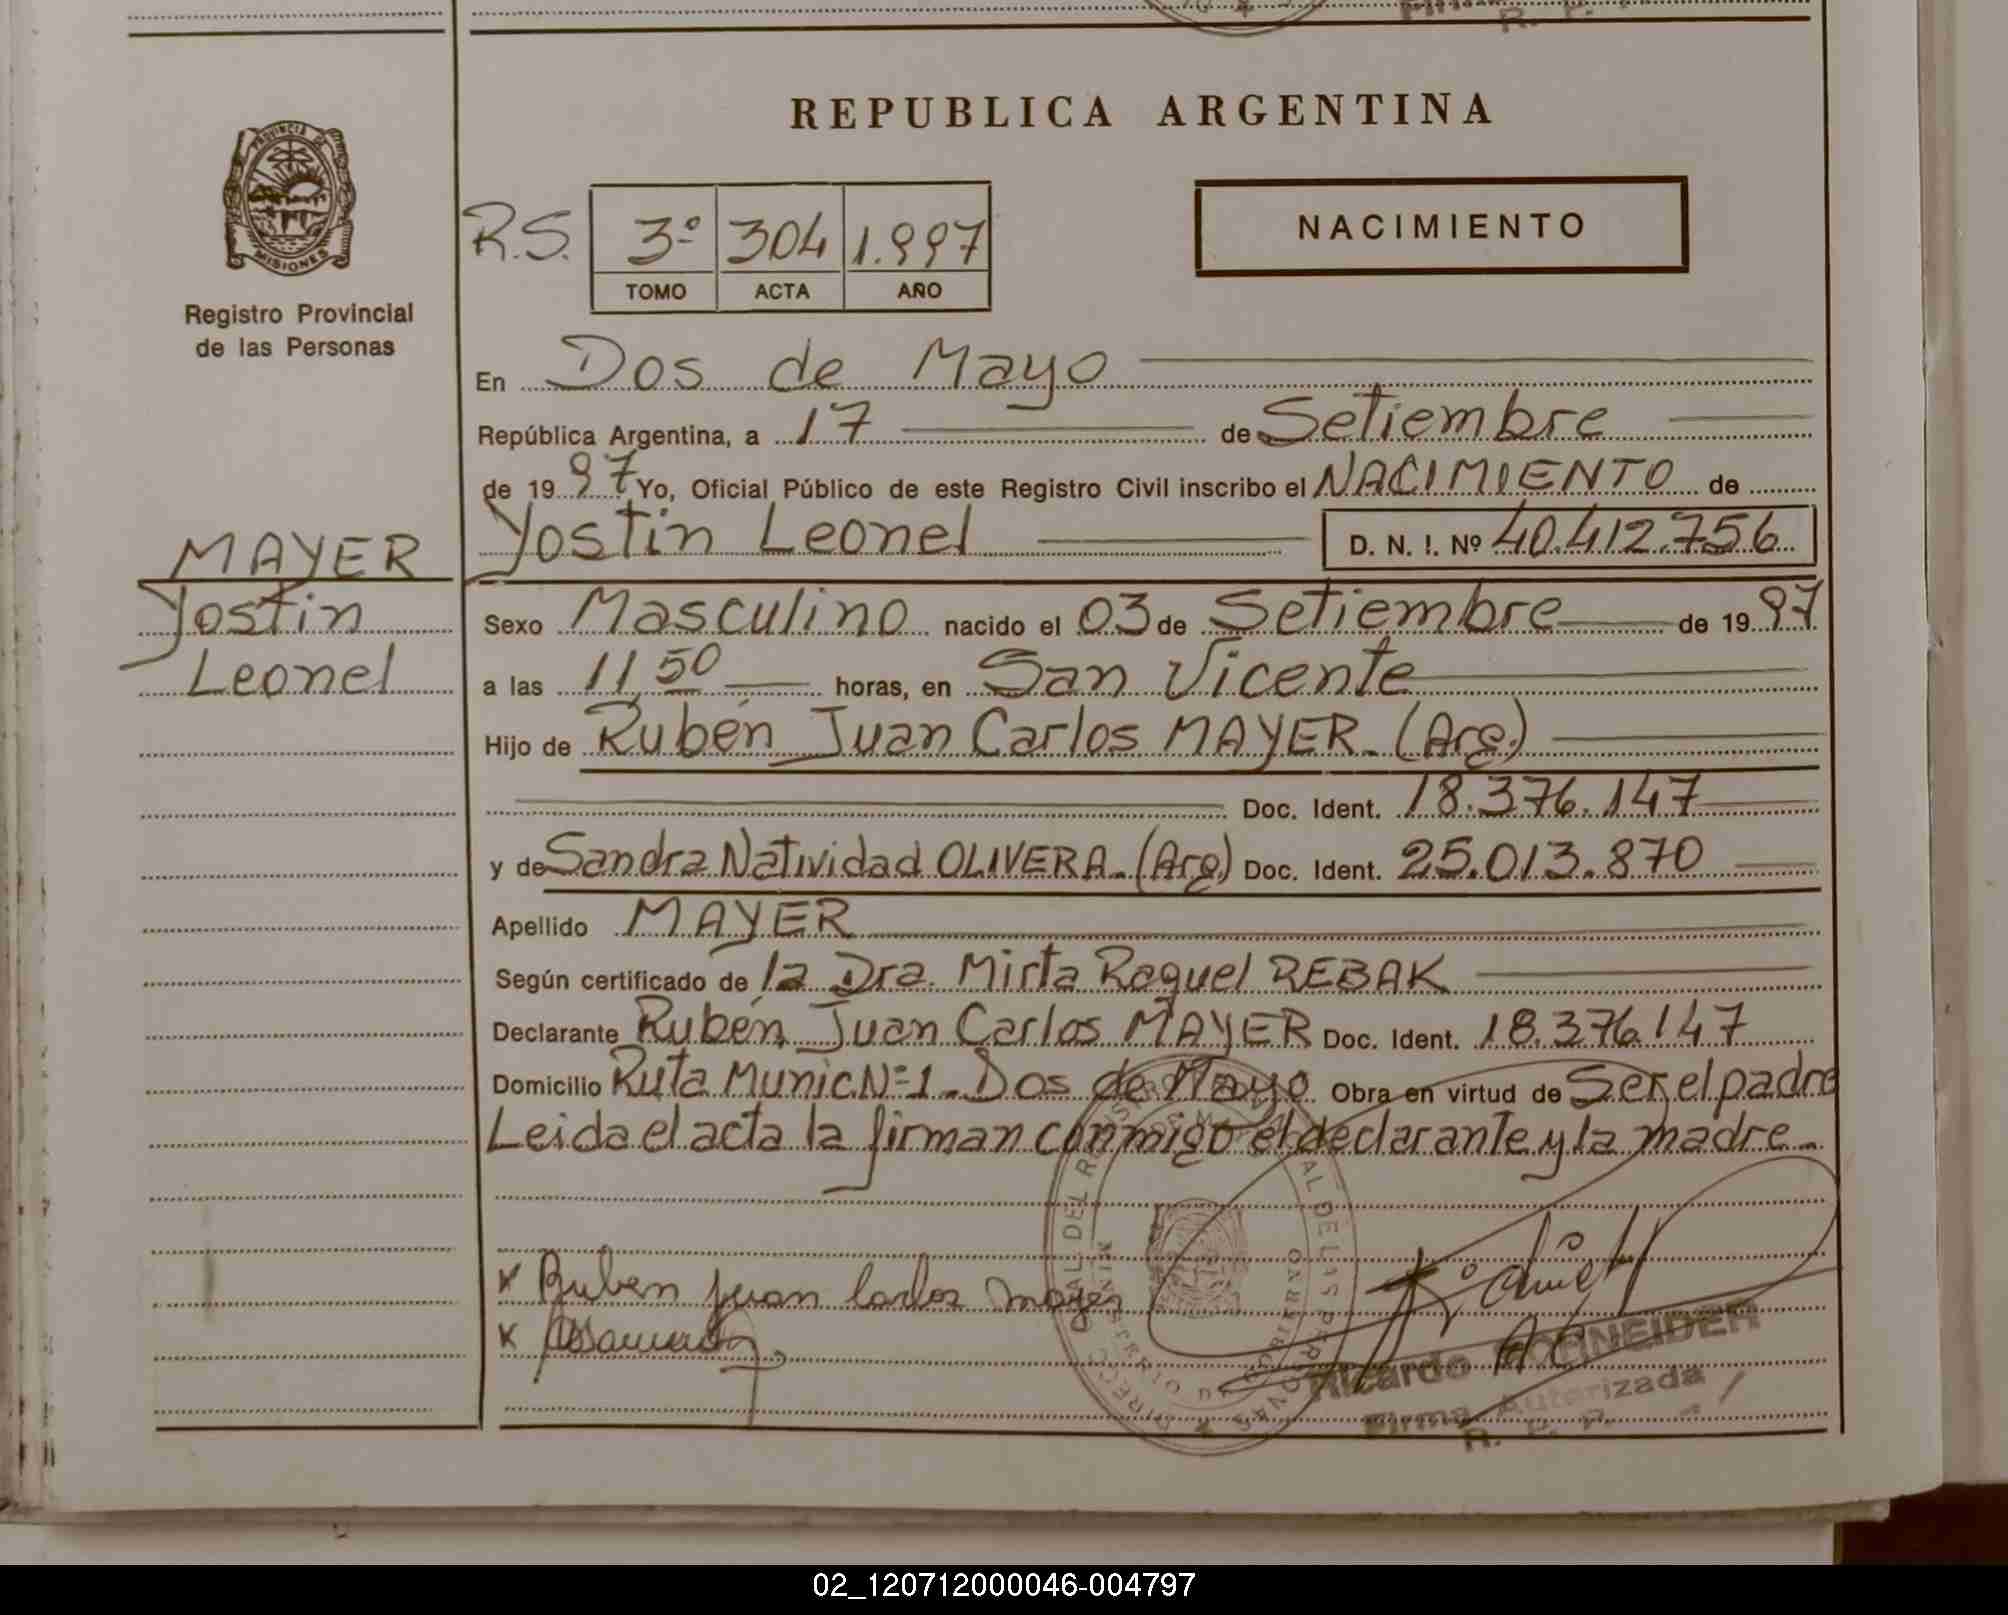 REPUBLICA ARGENTINA
PROVINCIA DE
MISIONES
Registro Provincial
de las Personas
R.S. 3º 304 1.997
TOMO ACTA AÑO
NACIMIENTO
En Dos de Mayo
República Argentina, a 17 de Setiembre
de 1997 Yo, Oficial Público de este Registro Civil inscribo el NACIMIENTO de
Yostin Leonel D. N. I. Nº 40.412.756
MAYER
Yostin
Leonel
Sexo Masculino nacido el 03 de Setiembre de 1997
a las 11,50 horas, en San Vicente
Hijo de Rubén Juan Carlos MAYER.(Arg.)
Doc. Ident. 18.376.147
y de Sandra Natividad OLIVERA.(Arg.) Doc. Ident. 25.013.870
Apellido MAYER
Según certificado de la Dra. Mirta Raquel REBAK
Declarante Rubén Juan Carlos MAYER Doc. Ident. 18.376.147
Domicilio Ruta Munic.Nº1. Dos de Mayo Obra en virtud de Ser el padre
Leida el acta la firman conmigo el declarante y la madre.
x Ruben juan Carlos mayer
x
Ricardo SCHNEIDER
Firma Autorizada
R. P. P.
02_120712000046-004797